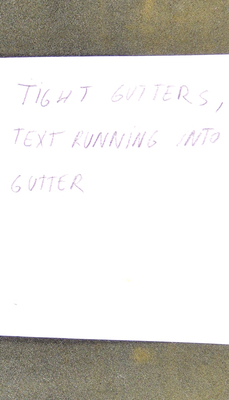 TIGHT GUTTERS,
TEXT RUNNING INTO
GUTTER